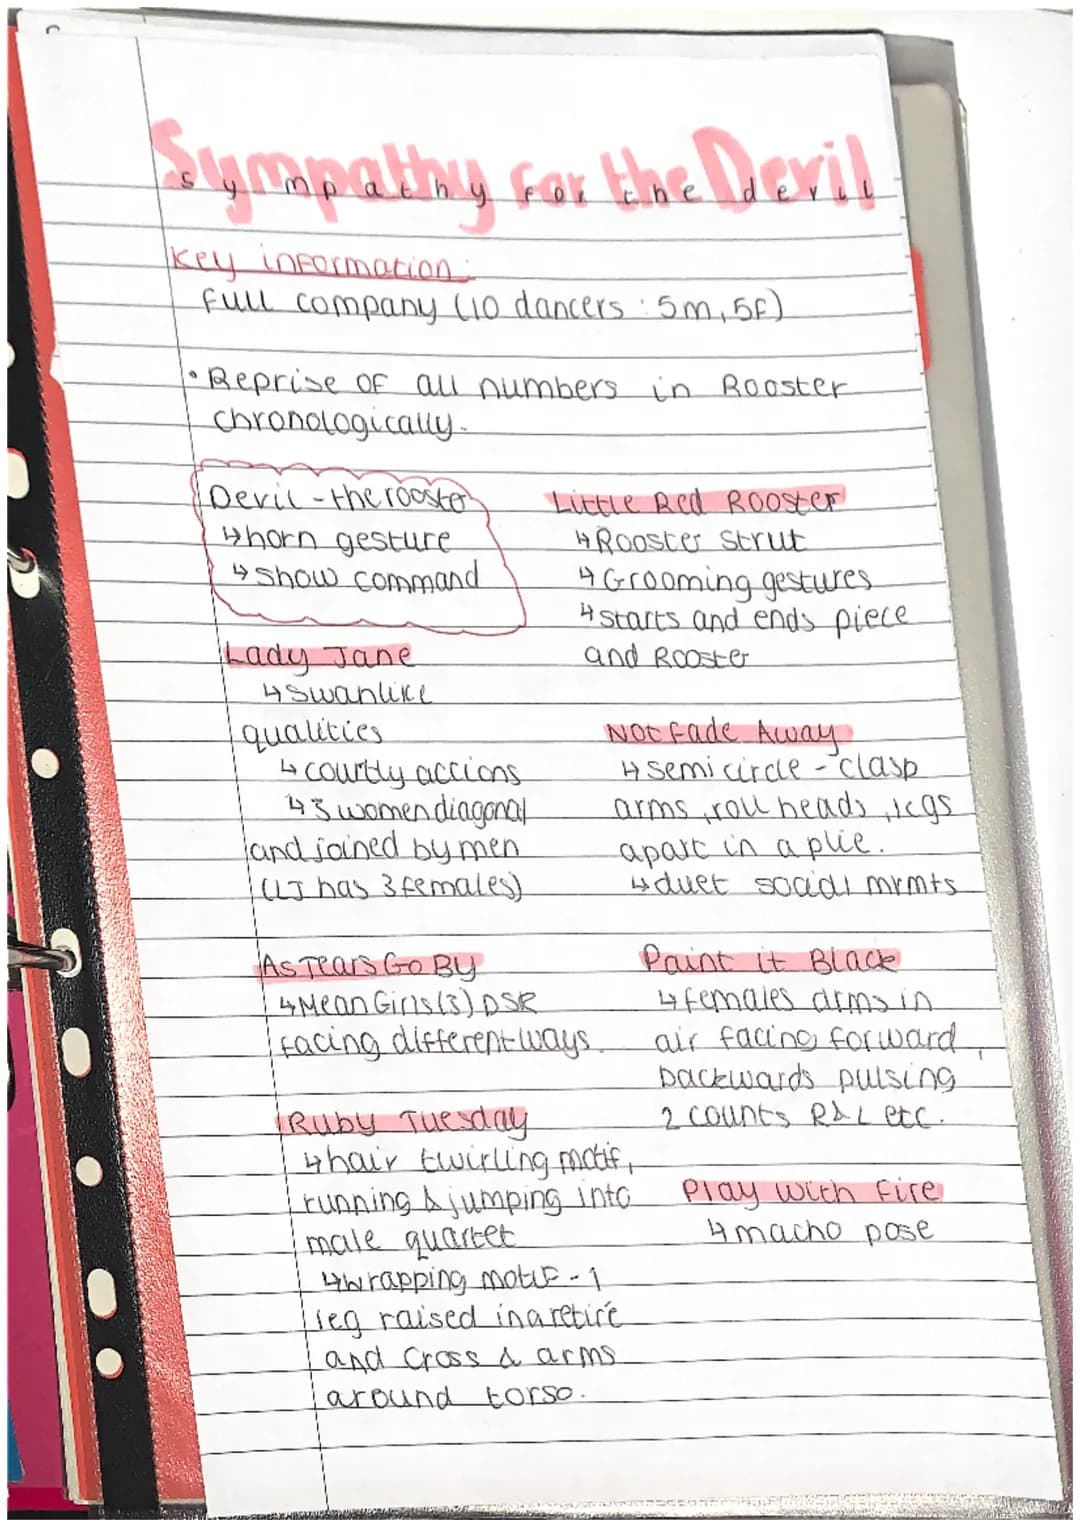 Sympathy for the Devil
sympathy for the devil
Key information:
Full company (10 dancers : 5m, 5f)
• Reprise of all numbers in Rooster
chronologically.
Devil - the rooster
↳ horn gesture
↳ show command
Little Red Rooster
↳ Rooster Strut
↳ Grooming gestures
↳ starts and ends piece
and Rooster
Lady Jane
↳ swanlike
qualities
↳ courtly actions
↳ 3 women diagonal
and joined by men
(LJ has 3 females)
Not Fade Away
↳ semi circle - clasp
arms, roll heads, legs
apart in a plie.
↳ duet social mvmts
As Tears Go By
↳ Mean Girls (3) DSR
facing different ways.
Paint it Black
↳ females arms in
air facing forward,
backwards pulsing
2 counts R & L etc.
Ruby Tuesday
↳ hair twirling motif,
running & jumping into
male quartet
↳ wrapping motif - 1
leg raised in a retiré
and cross & arms
around torso.
Play with Fire
↳ macho pose